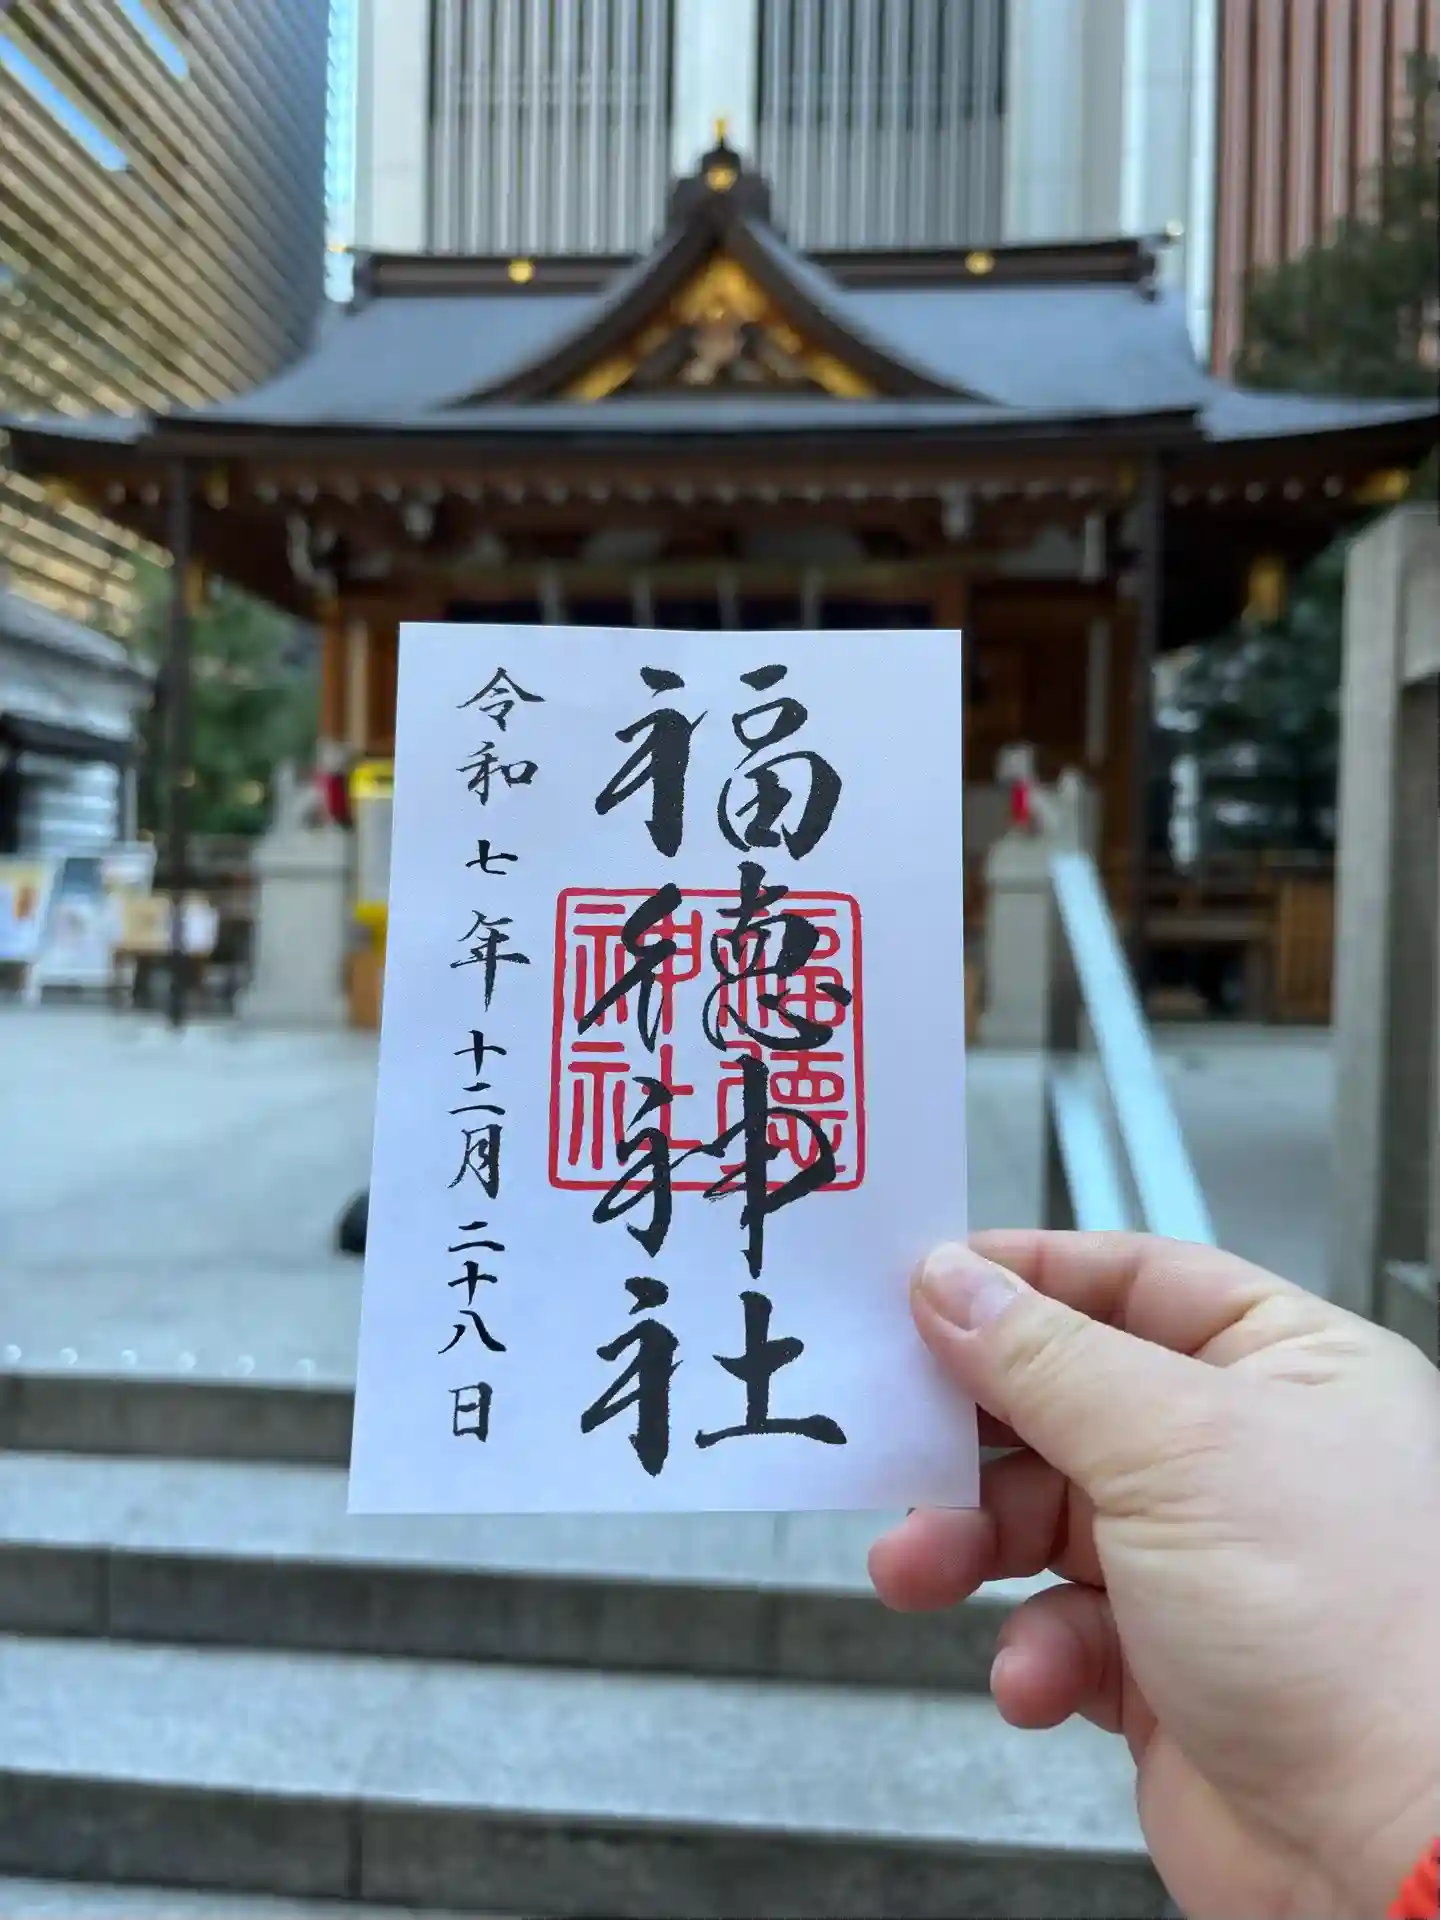 福徳神社
福徳
神社
令和七年十二月二十八日